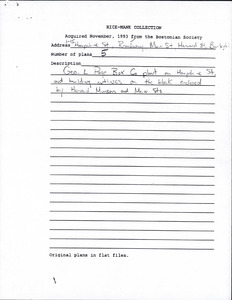 RICE-MANN COLLECTION
Acquired November, 1993 from the Bostonian Society
Address Hampshire St, Broadway, Main St Harvard St
Number of plans 5
Description
Geo. L Paper Box Co plant on Hampshire St
and building outlines on the block enclosed
by Harvard and Main Sts.
Original plans in flat files.